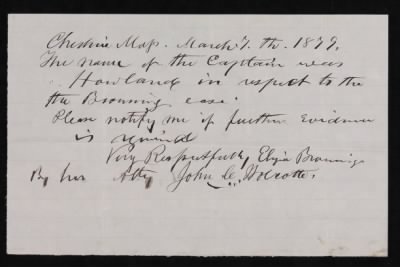 Cheshire Mass. March 7. th. 1879.
The name of the Captain was
Howland in respect to the
the Browning case.
Please notify me if further Evidence
is required
Very Respectfully, Browning
By her Atty John C. Wolcott.